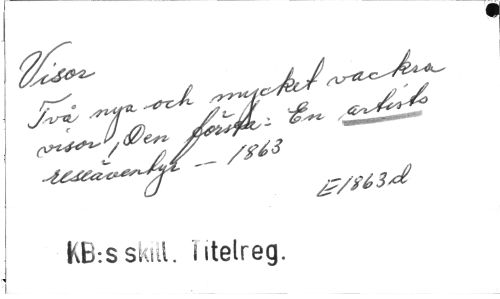 Visor
Två nya och mycket vackra
visor, Den förste: En artists
reseäventyr — 1863
E1863d
KB:s skill. Titelreg.